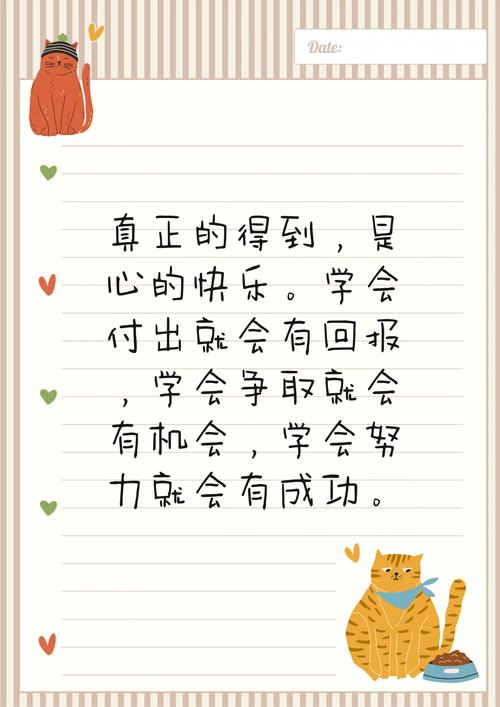 Date:
真正的得到，是
心的快乐。学会
付出就会有回报
，学会争取就会
有机会，学会努
力就会有成功。